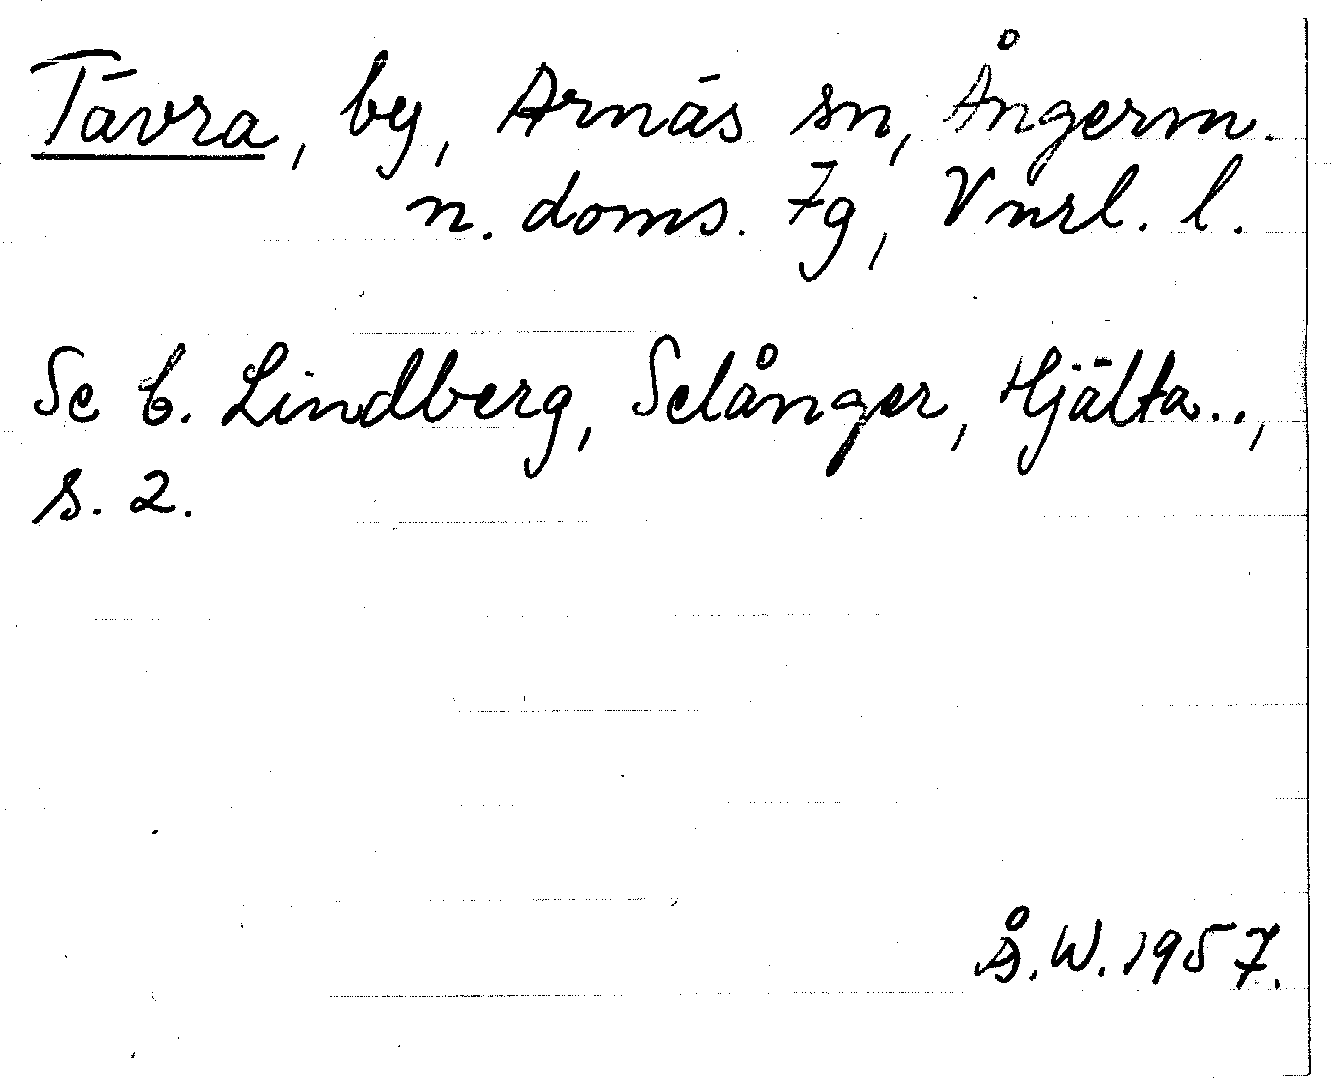 Tävra, by, Arnäs sn, Ångerm.
n. doms. fg, Vnrl. l.
Se C. Lindberg, Selånger, Hjälta..,
s. 2.
Å.W. 1957.